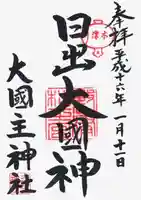 奉拝
平成十六年一月十一日
日出大國神
大國主神社